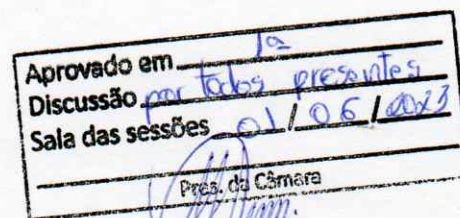 Aprovado em 1ª
Discussão por todos presentes
Sala das sessões 01 / 06 / 2023
Pres. da Câmara